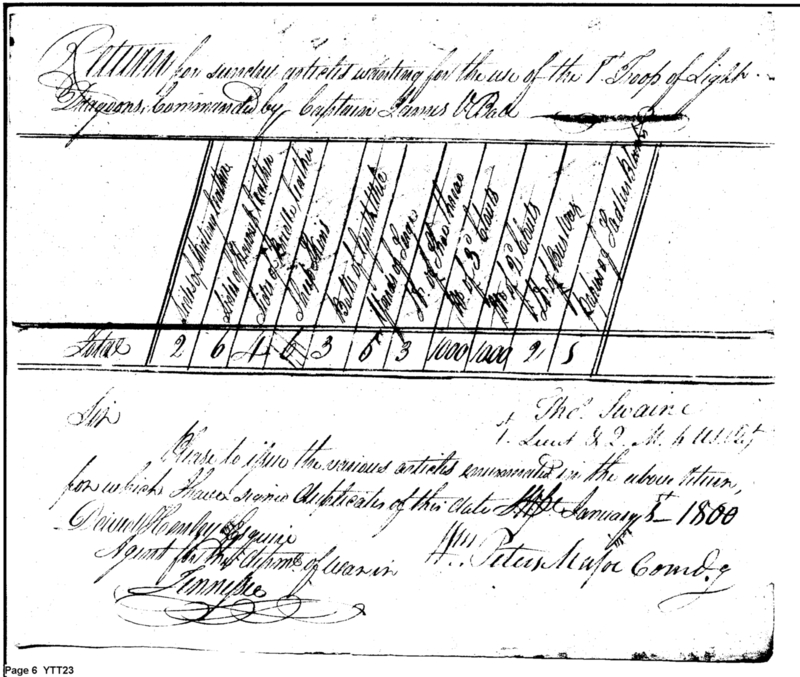 Return for sundry articles wanting for the use of the 1st Troop of Light
Dragoons, Commanded by Captain James V Ball
Sides of Leather
Sides of Harness Leather
Sides of Bridle Leather
Sheep Skins
Bolts of
Hands of
lb of Shoe Thread
No of 3d Clouts
No of 2d Clouts
lb of Bees Wax
Total 2 6 4 5 3 6 3 1000 1000 2 5
Sir
Thos. Swaine
1. Lieut & Q. M. 4 US Regt
Please to issue the various articles enumerated in the above return,
for which I have signed duplicates of this date January 1st 1800
David Henley Esquire
Agent for the departmt of war in
Tennessee
Wm. Peters Major Comdg
Page 6 YTT23